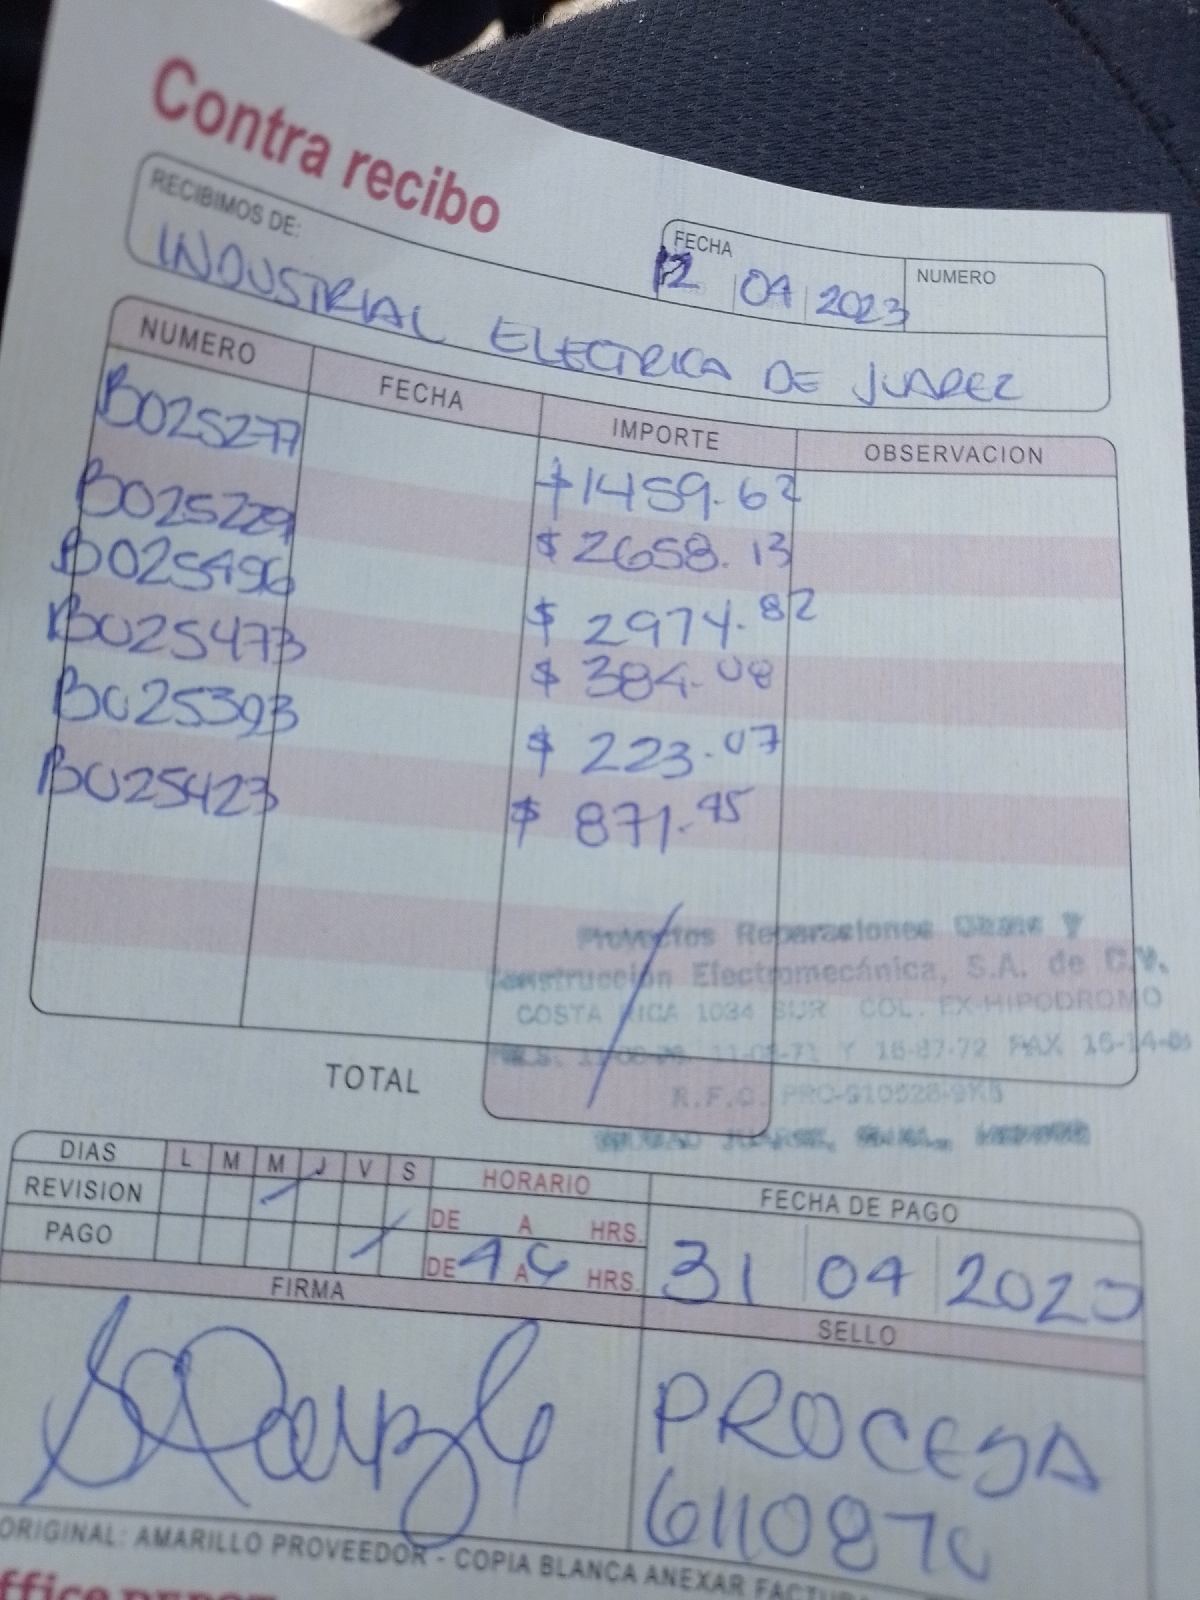 Contra recibo
RECIBIMOS DE:
INDUSTRIAL ELECTRICA DE JUAREZ
FECHA NUMERO
12 04 2023
NUMERO FECHA IMPORTE OBSERVACION
B025277 $1459.62
B025229 $2658.13
B025496 $2974.82
B025473 $384.08
B025393 $223.07
B025423 $871.95
Proyectos Reparaciones Obras Y
Construcción Electromecánica, S.A. de C.V.
COSTA RICA 1034 SUR COL. EX-HIPODROMO
Y 16-87-72 FAX
R.F.C. PRO-910528-9K5
TOTAL
DIAS L M M J V S HORARIO FECHA DE PAGO
REVISION DE A HRS.
PAGO DE 4 A 6 HRS. 31 04 2023
FIRMA SELLO
PROCESA
ORIGINAL: AMARILLO PROVEEDOR - COPIA BLANCA ANEXAR FACTURA